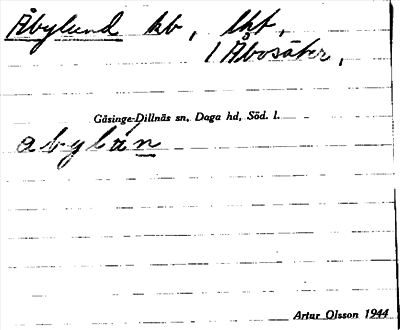 Åbylund hb, lht,
/ Åbosäter,
Gåsinge-Dillnäs sn, Daga hd, Söd. l.
abylun
Artur Olsson 1944